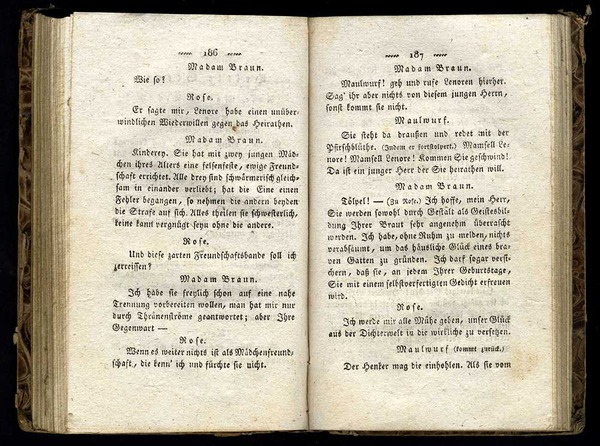 186
Madam Braun.
Wie so?
Rose.
Er sagte mir, Lenore habe einen unüber-
windlichen Wiederwillen gegen das Heirathen.
Madam Braun.
Kinderey. Sie hat mit zwey jungen Mäd-
chen ihres Alters eine felsenfeste, ewige Freund-
schaft errichtet. Alle drey sind schwärmerisch gleich-
sam in einander verliebt; hat die Eine einen
Fehler begangen, so nehmen die andern beyden
die Strafe auf sich. Alles theilen sie schwesterlich,
keine kann vergnügt seyn ohne die andre.
Rose.
Und diese zarten Freundschaftsbande soll ich
zerreissen?
Madam Braun.
Ich habe sie freylich schon auf eine nahe
Trennung vorbereiten wollen, man hat mir nur
durch Thränenströme geantwortet; aber Ihre
Gegenwart —
Rose.
Wenn es weiter nichts ist als Mädchenfreund-
schaft, die kenn' ich und fürchte sie nicht.
187
Madam Braun.
Maulwurf! geh und rufe Lenoren hierher.
Sag' ihr aber nichts von diesem jungen Herrn,
sonst kommt sie nicht.
Maulwurf.
Sie steht da draußen und redet mit der
Pfirschblüthe. (Indem er fortstolpert.) Mamsell Le-
nore! Mamsell Lenore! Kommen Sie geschwind!
Da ist ein junger Herr der Sie heirathen will.
Madam Braun.
Tölpel! — (Zu Rose.) Ich hoffe, mein Herr,
Sie werden sowohl durch Gestalt als Geistesbil-
dung Ihrer Braut sehr angenehm überrascht
werden. Ich habe, ohne Ruhm zu melden, nichts
verabsäumt, um das häusliche Glück eines bra-
ven Gatten zu gründen. Ich darf sogar versi-
chern, daß sie, an jedem Ihrer Geburtstage,
Sie mit einem selbstverfertigten Gedicht erfreuen
wird.
Rose.
Ich werde mir alle Mühe geben, unser Glück
aus der Dichterwelt in die wirkliche zu versetzen.
Maulwurf (kommt zurück.)
Der Henker mag die einhohlen. Als sie vom